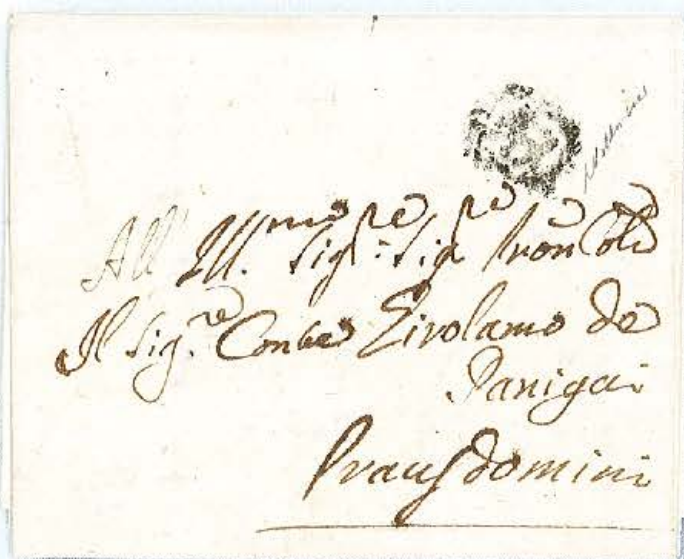 All' Ill.mo Sig.re Sig.re Pron Col.mo
Il Sig.re Conte Girolamo de
Panigai
Pravisdomini